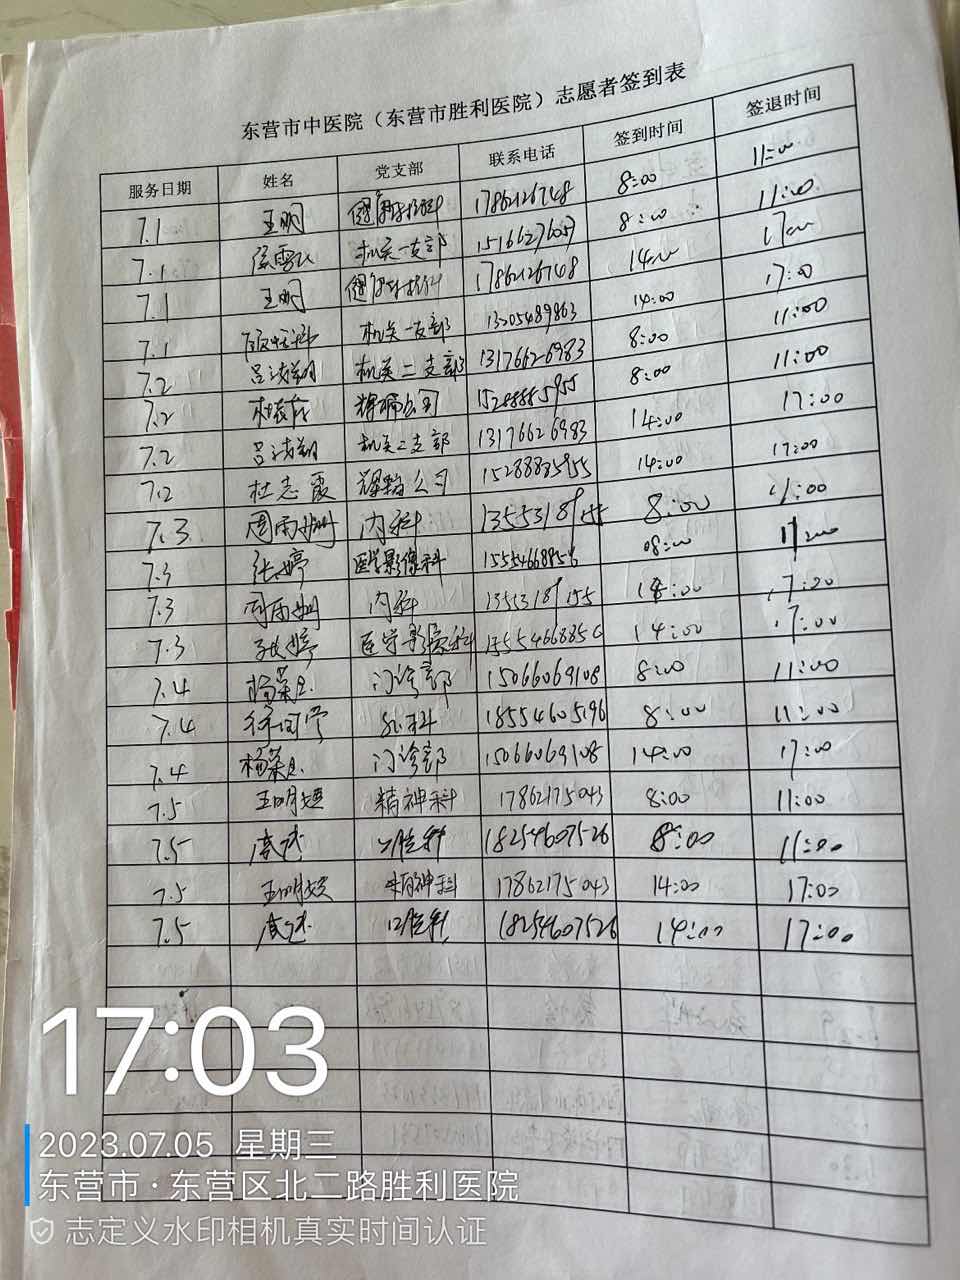 东营市中医院（东营市胜利医院）志愿者签到表
服务日期 姓名 党支部 联系电话 签到时间 签退时间
7.1 王明 17862126748 8:00 11:00
7.1 机关一支部 15166276057 8:00 11:00
7.1 王明 17862126748 14:00 17:00
7.1 机关一支部 13205489863 14:00 17:00
7.2 吕浅翔 机关二支部 13176626983 8:00 11:00
7.2 杜志霞 15288835955 8:00 11:00
7.2 吕浅翔 机关二支部 13176626983 14:00 17:00
7.2 杜志霞 公司 15288835955 14:00 17:00
7.3 周雨姗 内科 13553189155 8:00 11:00
7.3 张婷 医学影像科 15554668856 08:00 11:00
7.3 周雨姗 内科 13553189155 14:00 17:00
7.3 张婷 医学影像科 15554668856 14:00 17:00
7.4 门诊部 15066069108 8:00 11:00
7.4 外科 18554605196 8:00 11:00
7.4 门诊部 15066069108 14:00 17:00
7.5 王明 精神科 17862175043 8:00 11:00
7.5 口腔科 18254607526 8:00 11:00
7.5 王明 精神科 17862175043 14:00 17:00
7.5 口腔科 18254607526 14:00 17:00
17:03
2023.07.05 星期三
东营市·东营区北二路胜利医院
志定义水印相机真实时间认证